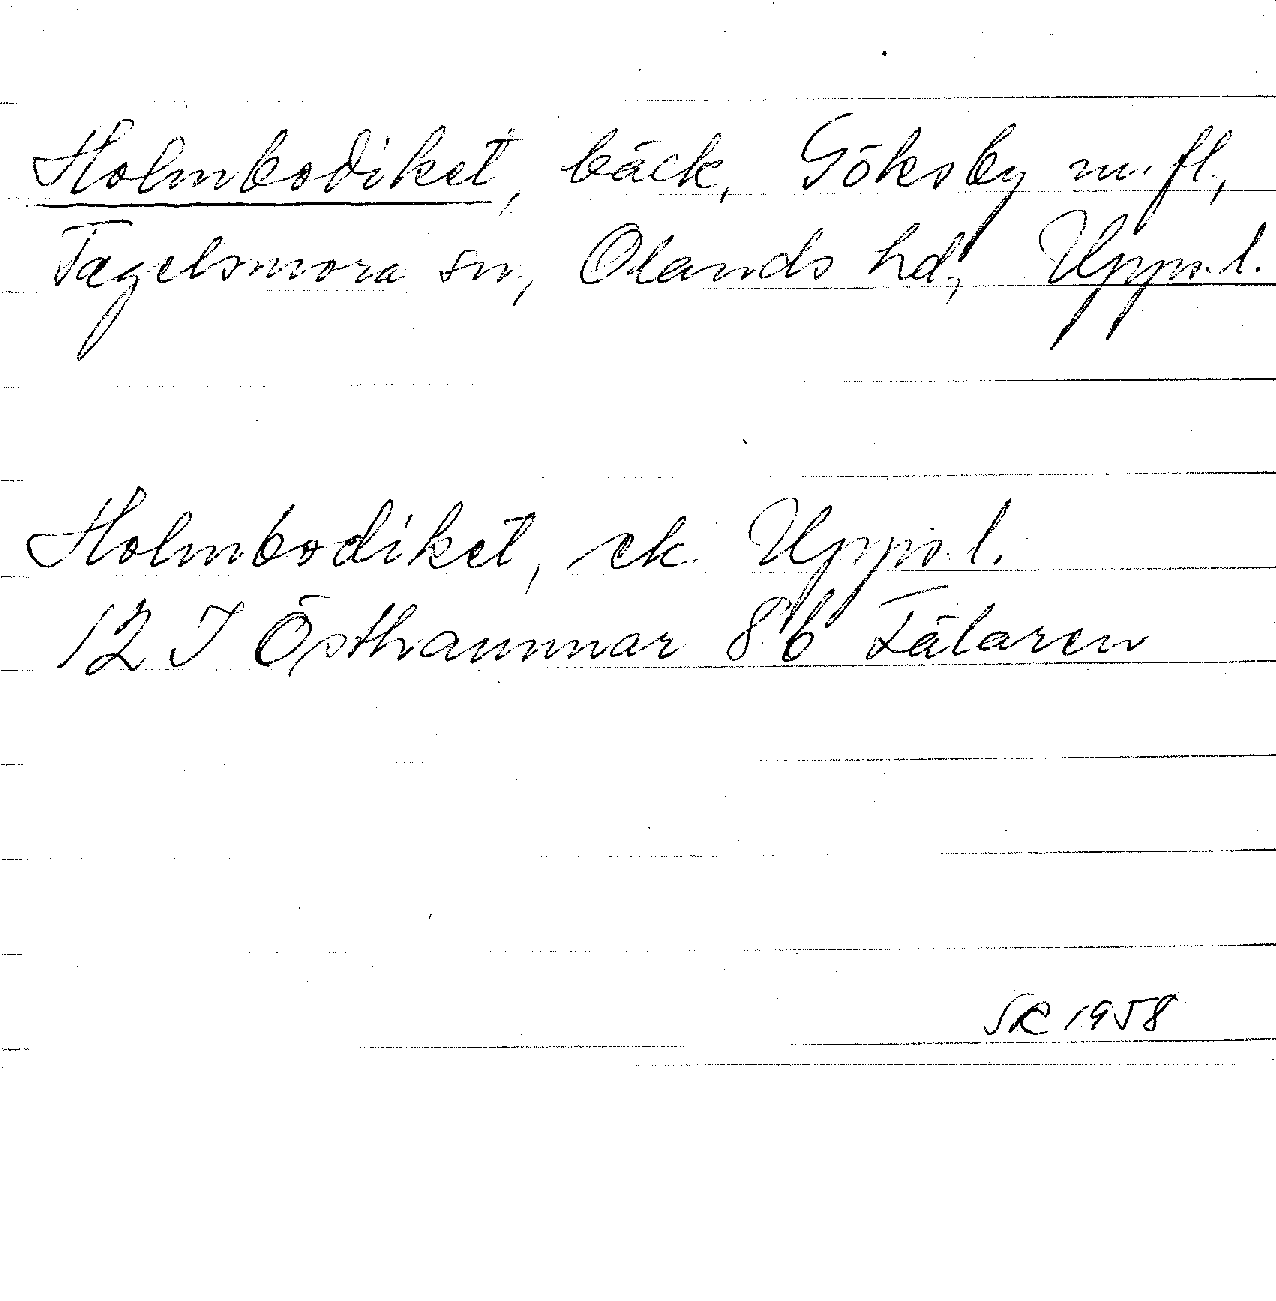 Holmbodiket, bäck, Göksby m.fl.,
Tegelsmora sn, Olands hd, Uppl.
Holmbodiket, ek. Uppl.
12 I Östhammar 8b Fälaren
SR 1958